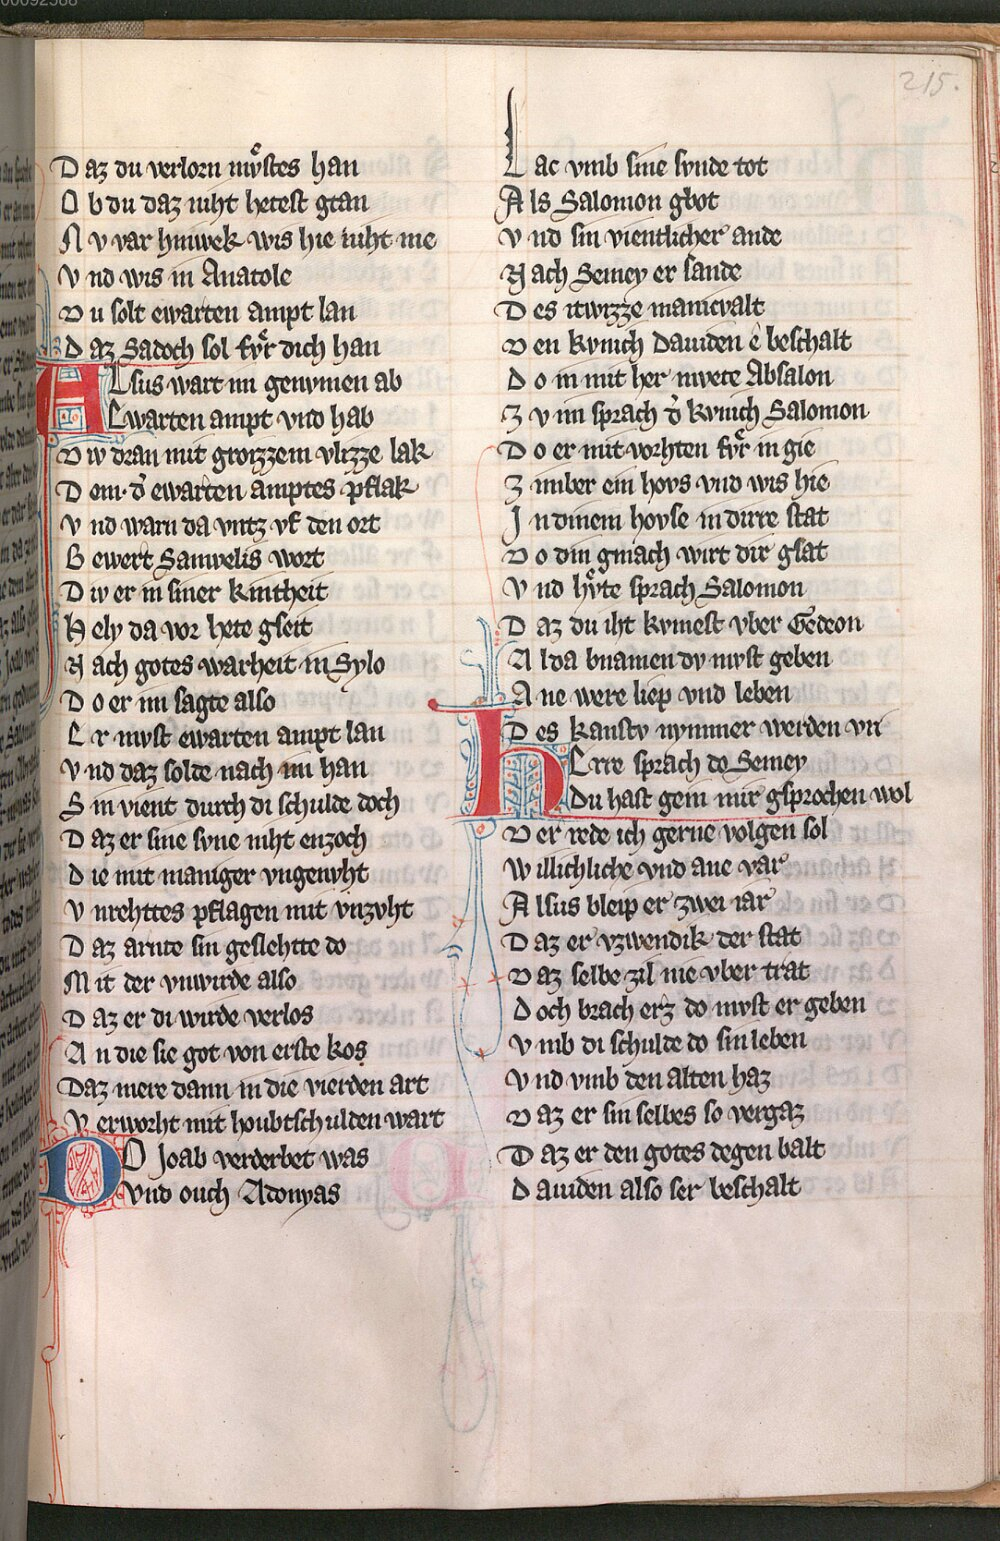 215.
Daz du verlorn mv̊stes han
Ob du daz niht hetest getan
Nv var hinwek wis hie niht me
Vnd wis in Anatole
Dv solt ewarten ampt lan
Daz Sadoch sol fv̊r dich han
Alsus wart im genvmen ab
Ewarten ampt vnd hab
Div dran mit grozzem vlizze lak
Dem d̓ ewarten amptes pflak
Vnd warn da vntz vf den ort
Bewert Samvelis wort
Div er in siner kintheit
Hely da vor hete gseit
Nach gotes warheit in Sylo
Do er im sagte also
Er mvst ewarten ampt lan
Vnd daz solde nach im han
Sin vient durch di schulde doch
Daz er sine svne niht enzoch
Die mit maniger vngenvht
Vnrehttes pflagen mit vnzvht
Daz arnte sin geslehtte do
Mit der vnwirde also
Daz er di wirde verlos
An die sie got von erste kos
Daz mere dann in die vierden art
Verworht mit houbtschulden wart
DO Joab verderbet was
Vnd ouch Adonyas
Lac vmb sine svnde tot
Als Salomon gebot
Vnd sin vientlicher ande
Nach Semey er sande
Des itwizze manicvalt
Den kvnich Dauiden ê beschalt
Do in mit her mvete Absalon
Zv im sprach d̓ kvnich Salomon
Do er mit vorhten fv̊r in gie
Zimber ein hovs vnd wis hie
In dinem hovse in dirre stat
Do din gmach wirt dir gsat
Vnd hv̊te sprach Salomon
Daz du iht kvmest vber Cedron
Alda bnamen dv mvst geben
Ane were liep vnd leben
Des kanstv nymmer werden vri
HErre sprach do Semey
Du hast gein mir gsprochen wol
Der rede ich gerne volgen sol
Willichliche vnd ane var
Alsus bleip er zwei iar
Daz er vzwendik der stat
Daz selbe zil nie vber trat
Doch brach erz do mvst er geben
Vmb di schulde do sin leben
Vnd vmb den alten haz
Daz er sin selbes so vergaz
Daz er den gotes degen balt
Dauiden also ser beschalt